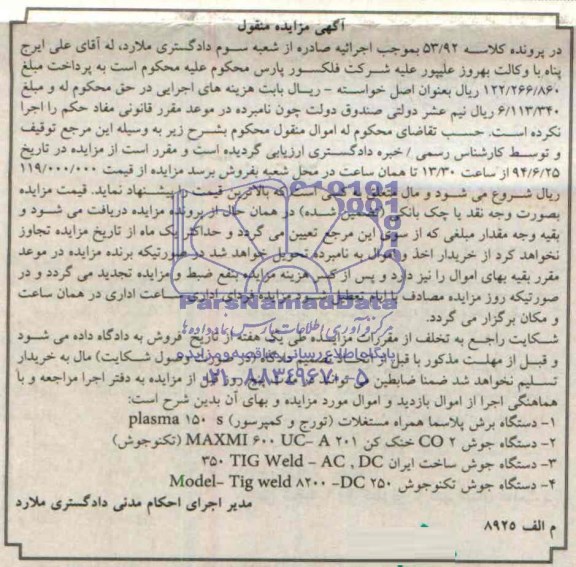 آگهی مزایده منقول
در پرونده کلاسه ۵۳/۹۲ بموجب اجرائیه صادره از شعبه سوم دادگستری ملارد، له آقای علی ایرج
پناه با وکالت بهروز علیپور علیه شرکت فلکسور پارس محکوم علیه محکوم است به پرداخت مبلغ
۱۲۲/۲۶۶/۸۶۰ ریال بعنوان اصل خواسته - ریال بابت هزینه های اجرایی در حق محکوم له و مبلغ
۶/۱۱۳/۳۴۰ ریال نیم عشر دولتی صندوق دولت چون نامبرده در موعد مقرر قانونی مفاد حکم را اجرا
نکرده است. حسب تقاضای محکوم له اموال منقول محکوم بشرح زیر به وسیله این مرجع توقیف
و توسط کارشناس رسمی / خبره دادگستری ارزیابی گردیده است و مقرر است از مزایده در تاریخ
۹۴/۶/۲۵ از ساعت ۱۳/۳۰ تا همان ساعت در محل شعبه بفروش برسد مزایده از قیمت ۱۱۹/۰۰۰/۰۰۰
ریال شروع می شود و مال متعلق به کسی است که بالاترین قیمت را پیشنهاد نماید. قیمت مزایده
بصورت وجه نقد یا چک بانکی (تضمین شده) در همان حال از برنده مزایده دریافت می شود و
بقیه وجه مقدار مبلغی که از سوی این مرجع تعیین می گردد و حداکثر یک ماه از تاریخ مزایده تجاوز
نخواهد کرد از خریدار اخذ و اموال به نامبرده تحویل خواهد شد در صورتیکه برنده مزایده در موعد
مقرر بقیه بهای اموال را نپردازد و پس از کسر هزینه مزایده بنفع ضبط و مزایده تجدید می گردد و در
صورتیکه روز مزایده مصادف با ایام تعطیل شود مزایده فردای اداری ساعت اداری در همان ساعت
و مکان برگزار می گردد.
ParsNamadData
مرکز فرآوری اطلاعات پارس نماد داده ها
شکایت راجع به تخلف از مقررات مزایده طی یک هفته از تاریخ فروش به دادگاه داده می شود
و قبل از مهلت مذکور یا قبل از اتخاذ تصمیم دادگاه (در صورت وصول شکایت) مال به خریدار
پایگاه اطلاع رسانی مناقصه و مزایده
تسلیم نخواهد شد ضمنا ضابطین می توانند پنج روز قبل از مزایده به دفتر اجرا مراجعه و با
۰۲۱-۸۸۳۴۹۶۷۰-۵
هماهنگی اجرا از اموال بازدید و اموال مورد مزایده و بهای آن بدین شرح است:
۱- دستگاه برش پلاسما همراه مستغلات (تورج و کمپرسور) plasma ۱۵۰ s
۲- دستگاه جوش CO ۲ خنک کن MAXMI ۶۰۰ UC- A ۲۰۱ (تکنوجوش)
۳- دستگاه جوش ساخت ایران ۳۵۰ TIG Weld - AC , DC
۴- دستگاه جوش تکنوجوش Model- Tig weld ۸۲۰۰ -DC ۲۵۰
مدیر اجرای احکام مدنی دادگستری ملارد
م الف ۸۹۲۵